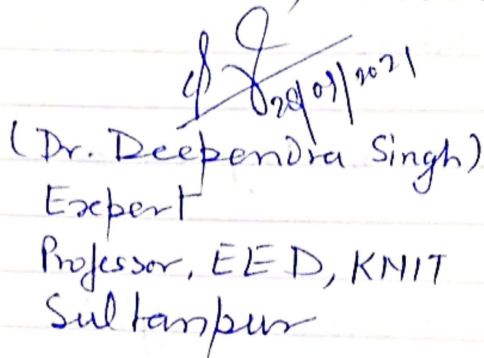 28/01/2021
(Dr. Deependra Singh)
Expert
Professor, EED, KNIT
Sultanpur